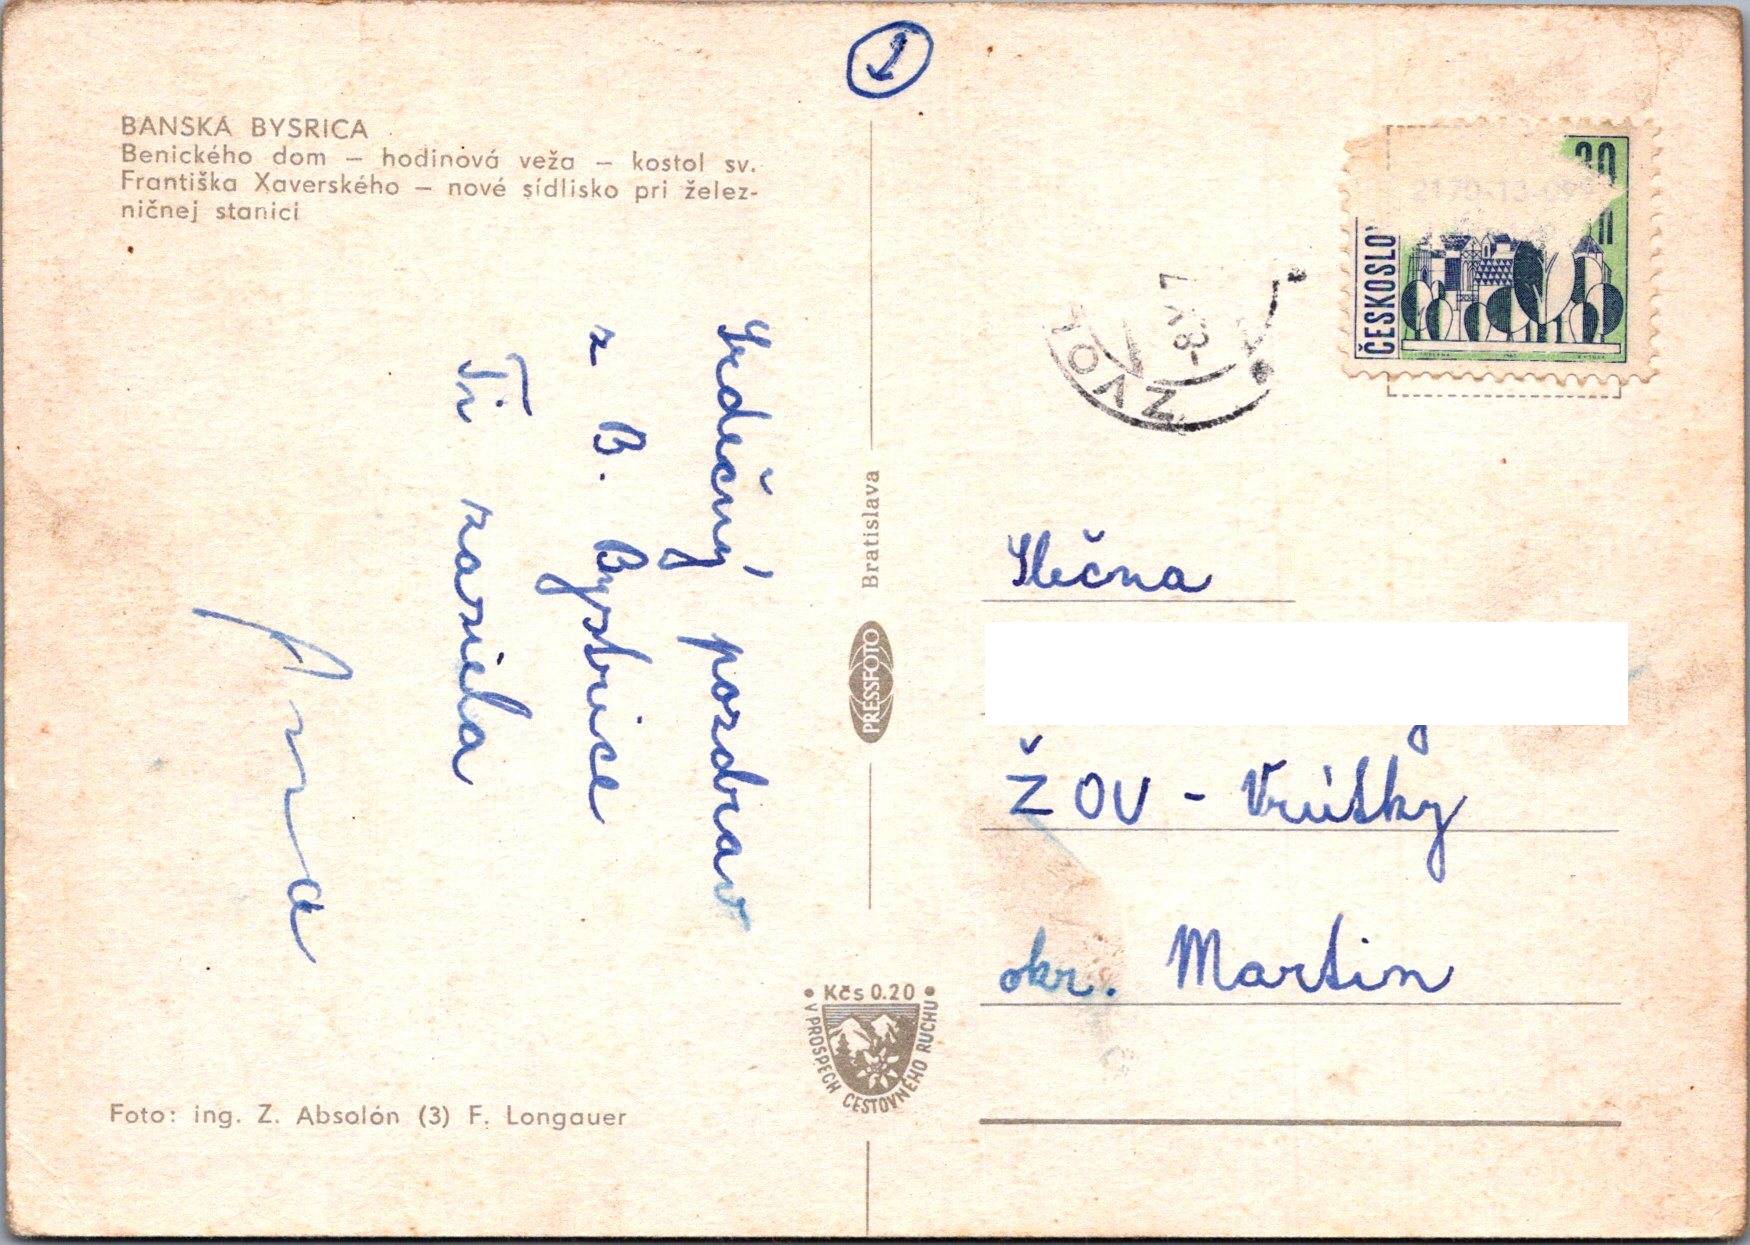 BANSKÁ BYSRICA
Benického dom – hodinová veža – kostol sv.
Františka Xaverského – nové sídlisko pri želez-
ničnej stanici
Srdečný pozdrav
z B. Bystrice
Ti zasiela
Anna
Foto: ing. Z. Absolón (3) F. Longauer
Bratislava
PRESSFOTO
Kčs 0.20
V PROSPECH CESTOVNÉHO RUCHU
ZVOL
ČESKOSLO
30
Slečna
ŽOV - Vrútky
okr. Martin